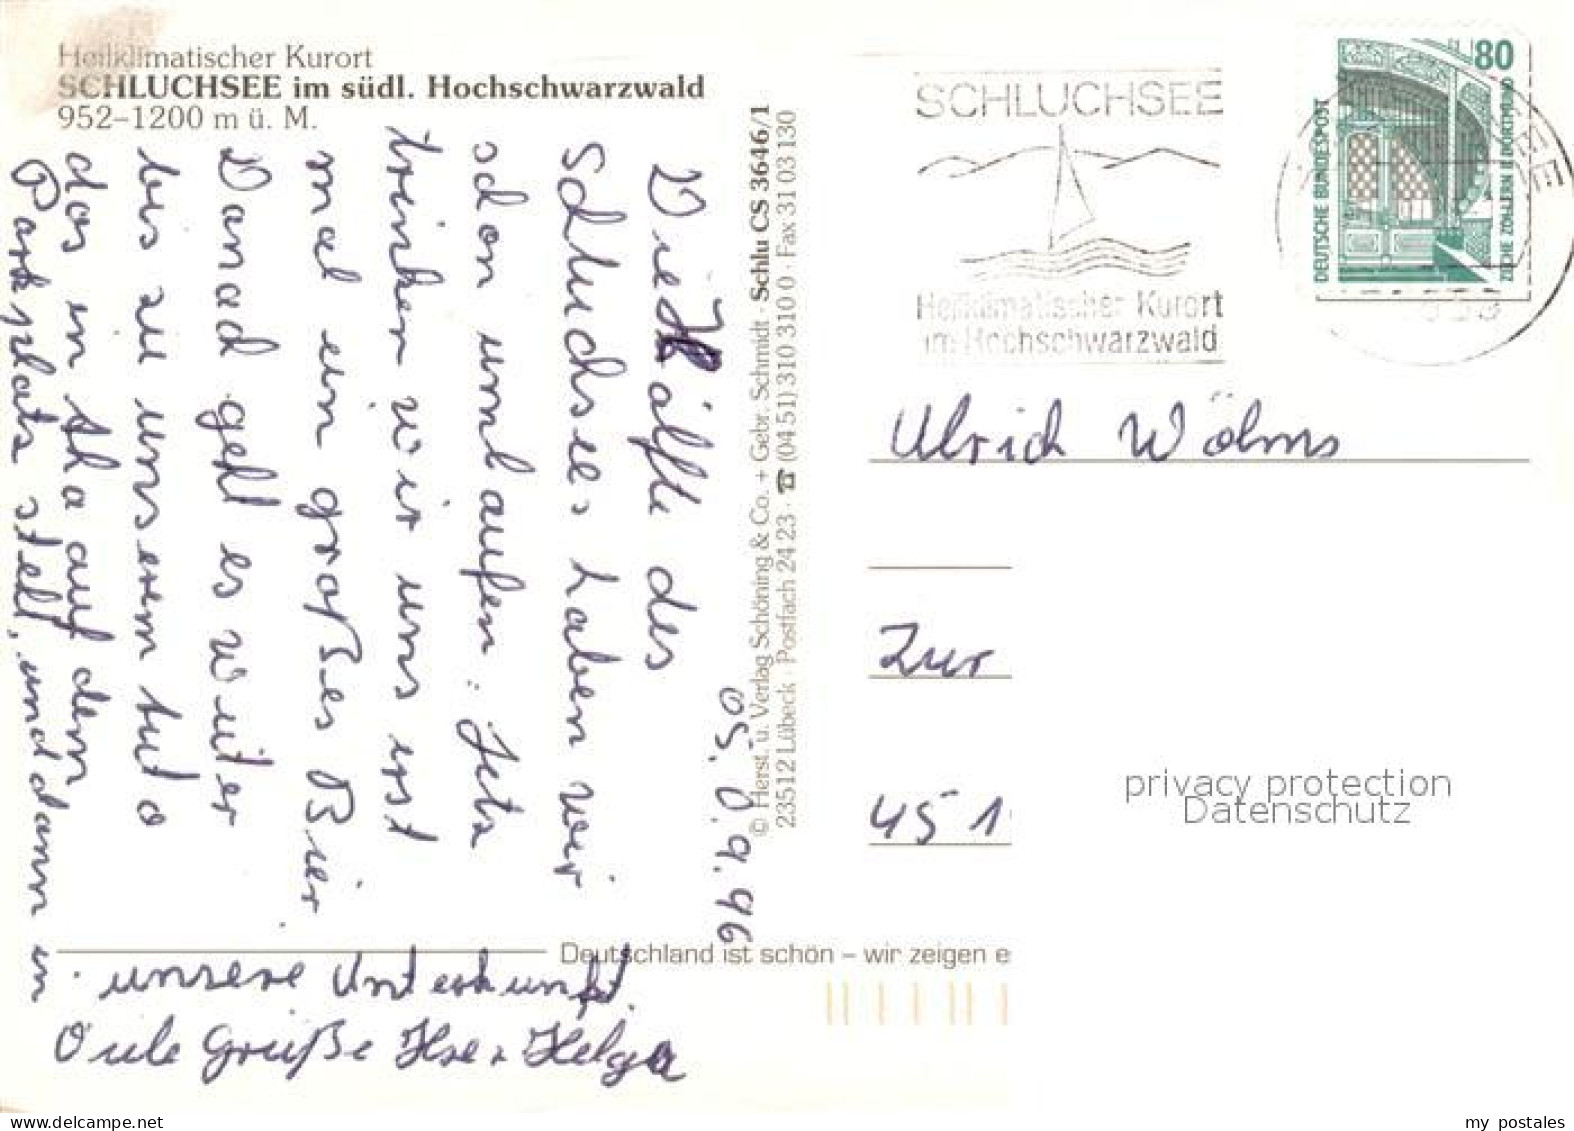 Heilklimatischer Kurort
SCHLUCHSEE im südl. Hochschwarzwald
952–1200 m ü. M.
05.09.96
Die Hälfte des
Schluchsees haben wir
schon umlaufen. Jetz
trinken wir uns erst
mal ein großes Bier.
Danach geht es weiter
bis zu unserem Auto
das in Aha auf dem
Parkplatz steht, und dann in
unsere Unterkunft.
Viele Grüße Ilse + Helga
© Herst. u. Verlag Schöning & Co. + Gebr. Schmidt · Schlu CS 3646/1
23512 Lübeck · Postfach 24 23 · ☎ (04 51) 310 310 0 · Fax 31 03 130
Deutschland ist schön – wir zeigen e
SCHLUCHSEE
Heilklimatischer Kurort
im Hochschwarzwald
80
DEUTSCHE BUNDESPOST
ZECHE ZOLLERN II DORTMUND
Ulrich Wölms
Zur
45 1
privacy protection
Datenschutz
my postales